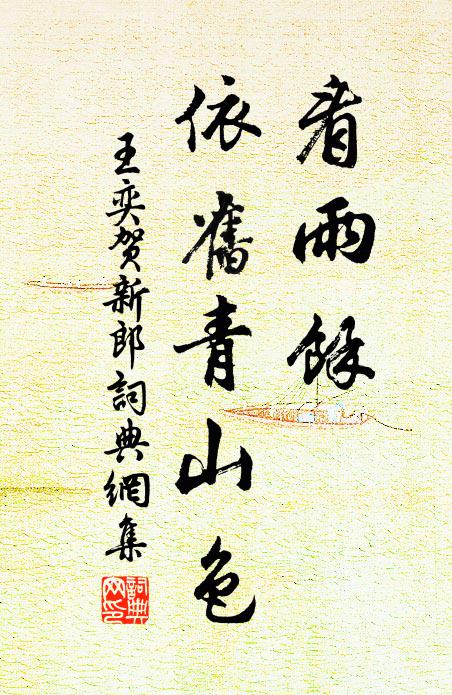 看雨餘
依舊青山色
王奕賀新郎詞典網集
詞典网印